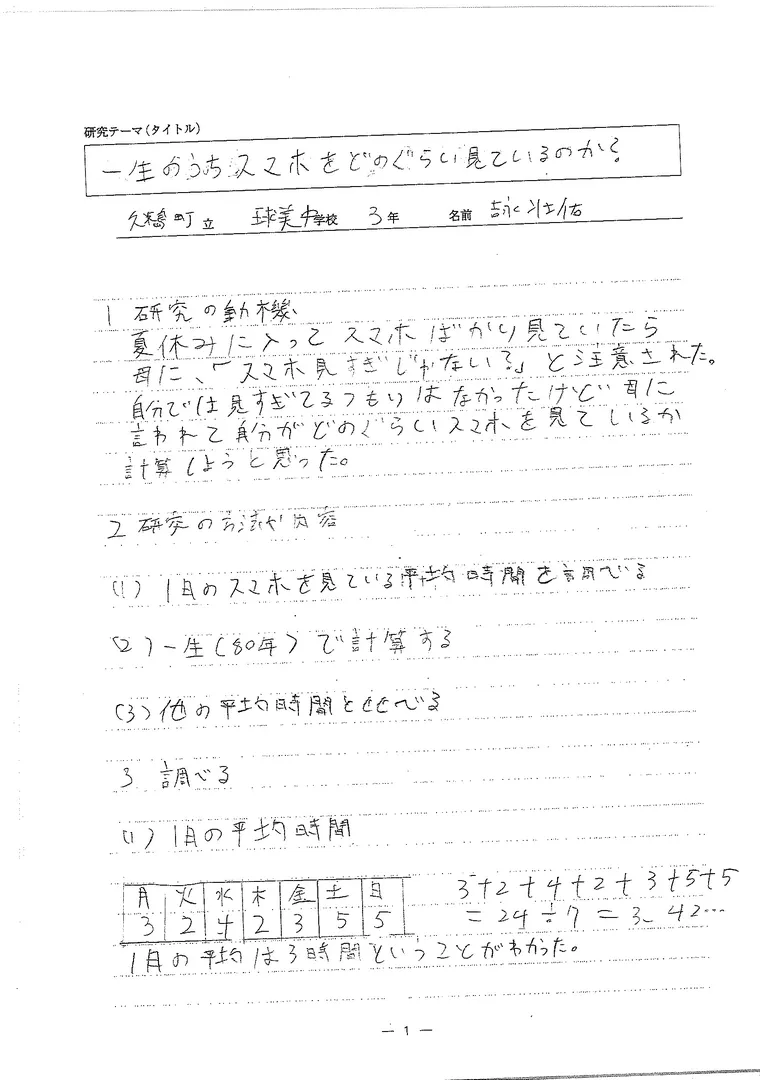 研究テーマ(タイトル)
一生のうちスマホをどのぐらい見ているのか?
町立 球美中学校 3年 名前
1 研究の動機
夏休みに入って スマホ ばかり見ていたら
母に、「スマホ見すぎじゃない?」と注意された。
自分では見すぎてるつもりはなかったけど 母に
言われて自分がどのぐらいスマホを見ているか
計算しようと思った。
2 研究の方法や内容
(1) 1日のスマホを見ている平均時間を調べる
(2) 一生(80年)で計算する
(3) 他の平均時間とせせべる
3 調べる
(1) 1日の平均時間
月 火 水 木 金 土 日
3 2 4 2 3 5 5
3+2+4+2+3+5+5
=24÷7=3.42…
1日の平均は3時間ということがわかった。
— 1 —